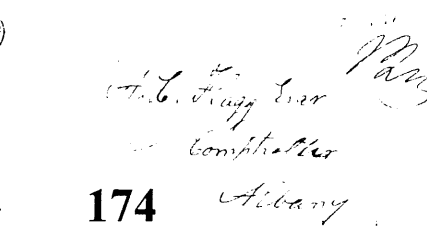 A. C. Flagg Esqr
Comptroller
Albany
174